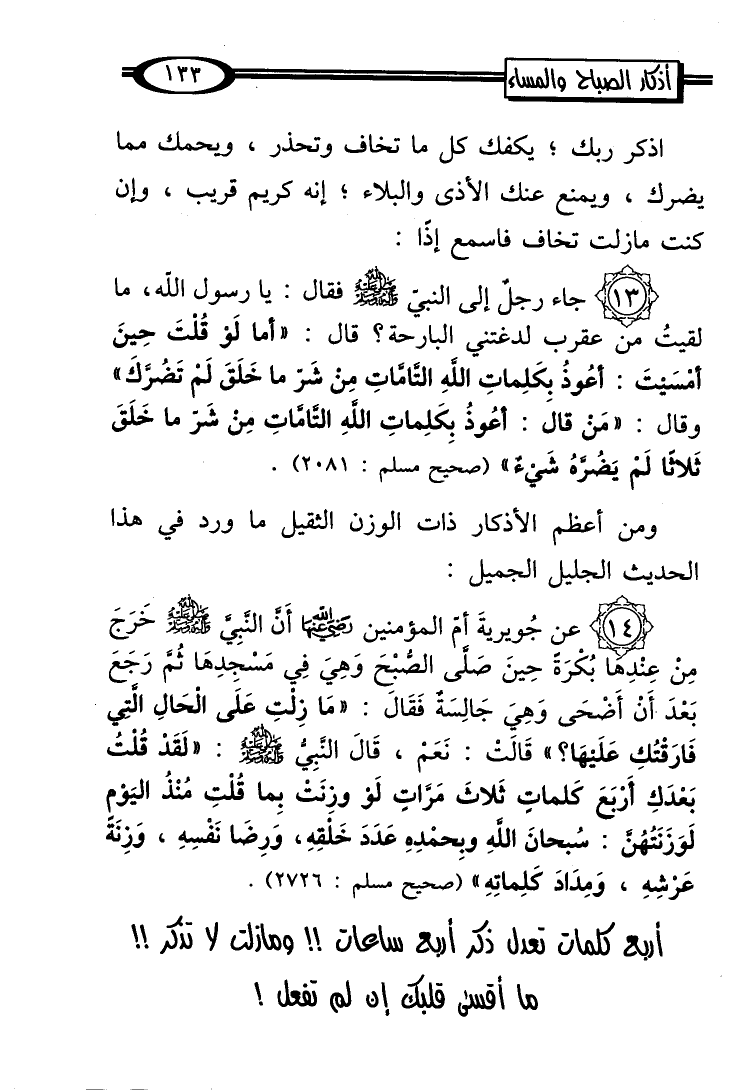 أذكار الصباح والمساء ١٣٣
اذكر ربك ؛ يكفك كل ما تخاف وتحذر ، ويحمك مما
يضرك ، ويمنع عنك الأذى والبلاء ؛ إنه كريم قريب ، وإن
كنت مازلت تخاف فاسمع إذًا :
١٣ جاء رجلٌ إلى النبيّ ﷺ فقال : يا رسول الله، ما
لقيتُ من عقرب لدغتني البارحة؟ قال : «أما لَوْ قُلْتَ حِينَ
أمْسَيْتَ : أعُوذُ بِكَلِماتِ اللَّهِ التَّامَّاتِ مِنْ شَرّ ما خَلَقَ لَمْ تَضُرَّكَ»
وقال : «مَنْ قال : أعُوذُ بِكَلِماتِ اللَّهِ التَّامَّاتِ مِنْ شَرّ ما خَلَقَ
ثَلاثًا لَمْ يَضُرَّهُ شَيْءٌ» (صحيح مسلم : ٢٠٨١) .
ومن أعظم الأذكار ذات الوزن الثقيل ما ورد في هذا
الحديث الجليل الجميل :
١٤ عن جُويريةَ أمّ المؤمنين رضي الله عنها أَنَّ النَّبِيَّ ﷺ خَرَجَ
مِنْ عِنْدِها بُكْرَةً حِينَ صَلَّى الصُّبْحَ وَهِيَ فِي مَسْجِدِهَا ثُمَّ رَجَعَ
بَعْدَ أَنْ أَضْحَى وَهِيَ جَالِسَةٌ فَقَالَ : «مَا زِلْتِ عَلَى الْحَالِ الَّتِي
فَارَقْتُكِ عَلَيْهَا؟» قَالَتْ : نَعَمْ ، قَالَ النَّبِيُّ ﷺ : «لَقَدْ قُلْتُ
بَعْدَكِ أَرْبَعَ كَلماتٍ ثَلاثَ مَرَّاتٍ لَوْ وزِنَتْ بِما قُلْتِ مُنْذُ اليَوْم
لَوَزَنَتْهُنَّ : سُبحانَ اللَّهِ وبِحمْدِهِ عَدَدَ خَلْقِهِ، وَرِضَا نَفْسِهِ ، وَزِنَةَ
عَرْشِهِ ، وَمِدَادَ كَلِماتِهِ» (صحيح مسلم : ٢٧٢٦) .
أربع كلمات تعدل ذكر أربع ساعات !! ومازلت لا تذكر !!
ما أقسى قلبك إن لم تفعل !